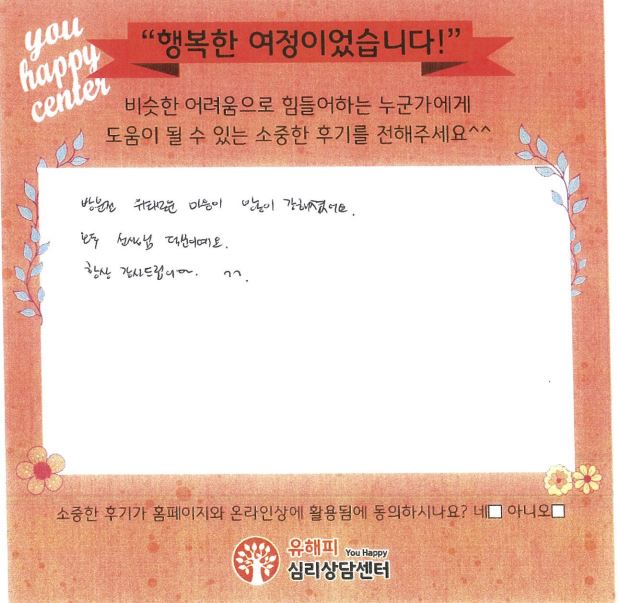 you
happy
center
“행복한 여정이었습니다!”
비슷한 어려움으로 힘들어하는 누군가에게
도움이 될 수 있는 소중한 후기를 전해주세요^^
위태로운 마음이 많이 강해졌어요.
모두 선생님 덕분이예요.
항상 감사드립니다. ^^.
소중한 후기가 홈페이지와 온라인상에 활용됨에 동의하시나요? 네□ 아니오□
유해피 You Happy
심리상담센터